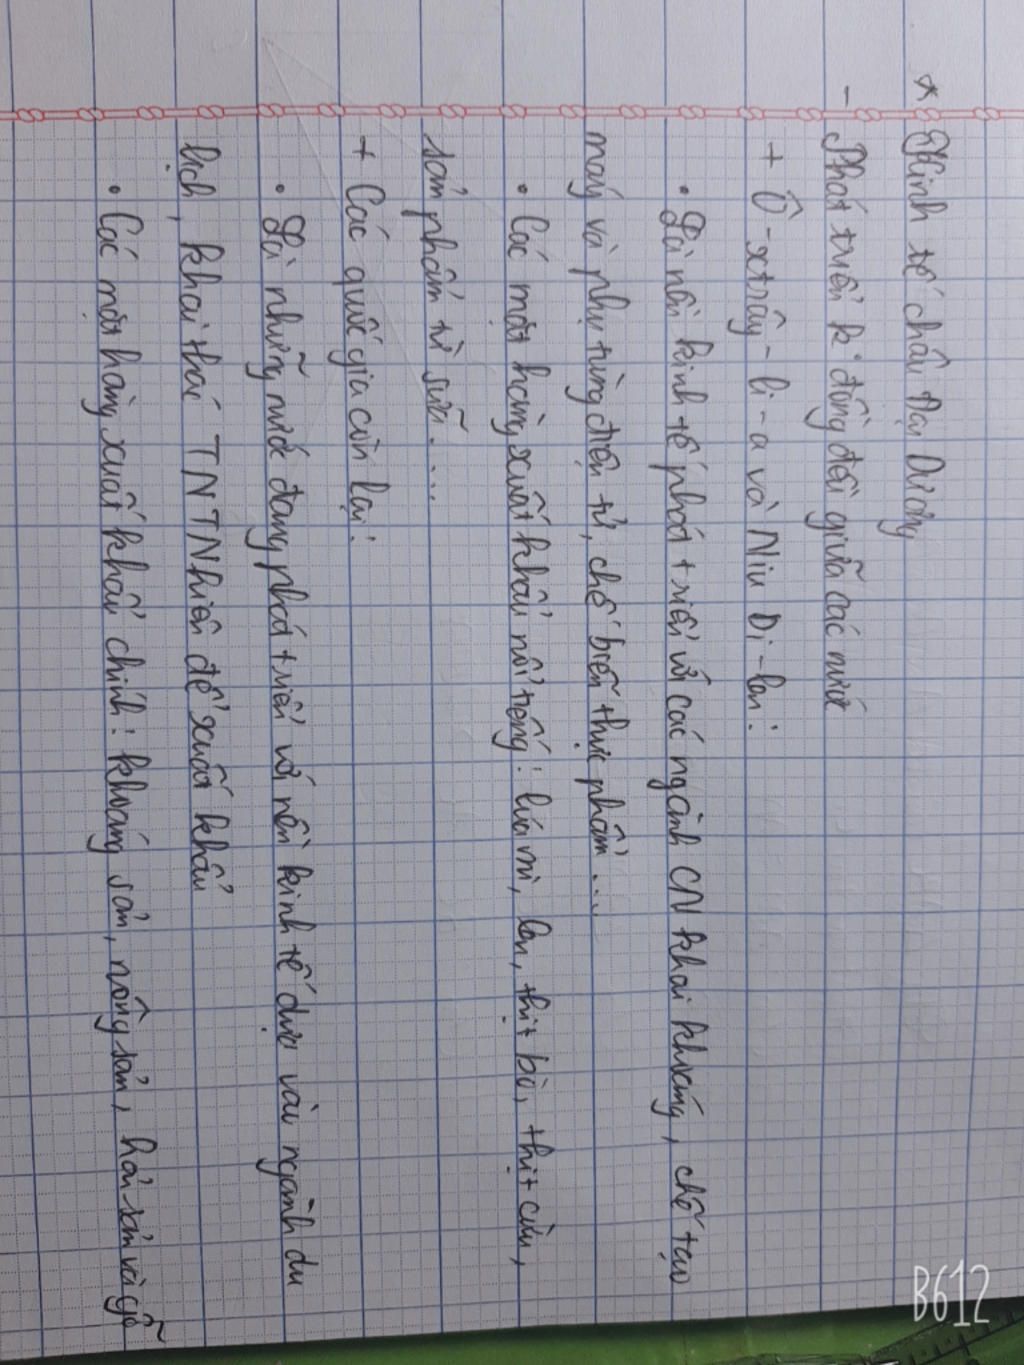 * Kinh tế châu Đại Dương
- Phát triển k. đồng đều giữa các nước
+ Ô-xtrây-li-a và Niu Di-lan:
• Là nền kinh tế phát triển với các ngành CN khai khoáng, chế tạo
máy và phụ tùng điện tử, chế biến thực phẩm...
• Các mặt hàng xuất khẩu nổi tiếng: lúa mì, len, thịt bò, thịt cừu,
sản phẩm từ sữa....
+ Các quốc gia còn lại:
• Là những nước đang phát triển với nền kinh tế dựa vào ngành du
lịch, khai thác TNTNhiên để xuất khẩu
• Các mặt hàng xuất khẩu chính: khoáng sản, nông sản, hải sản và gỗ
B612